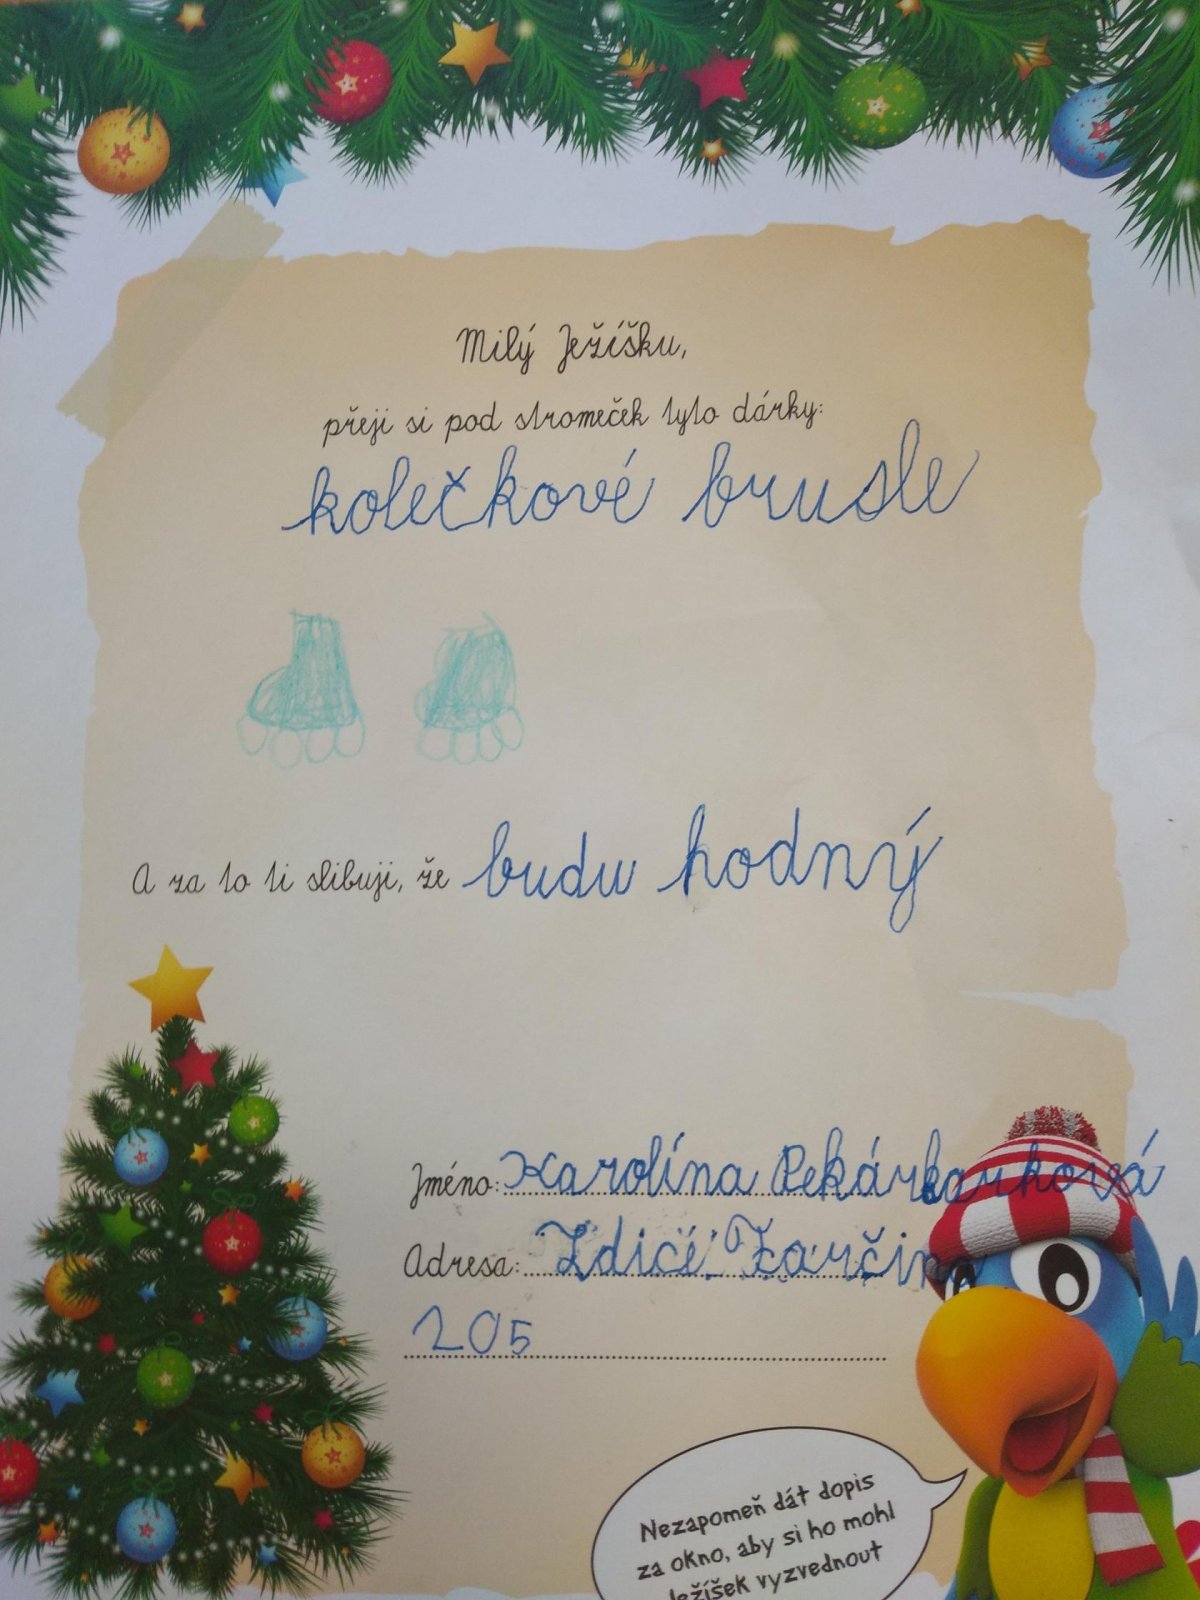 Milý Ježíšku,
přeji si pod stromeček tyto dárky:
kolečkové brusle
A za to ti slibuji, že budu hodný
Jméno: Karolína
Adresa: Zdice
205
Nezapomeň dát dopis
za okno, aby si ho mohl
Ježíšek vyzvednout